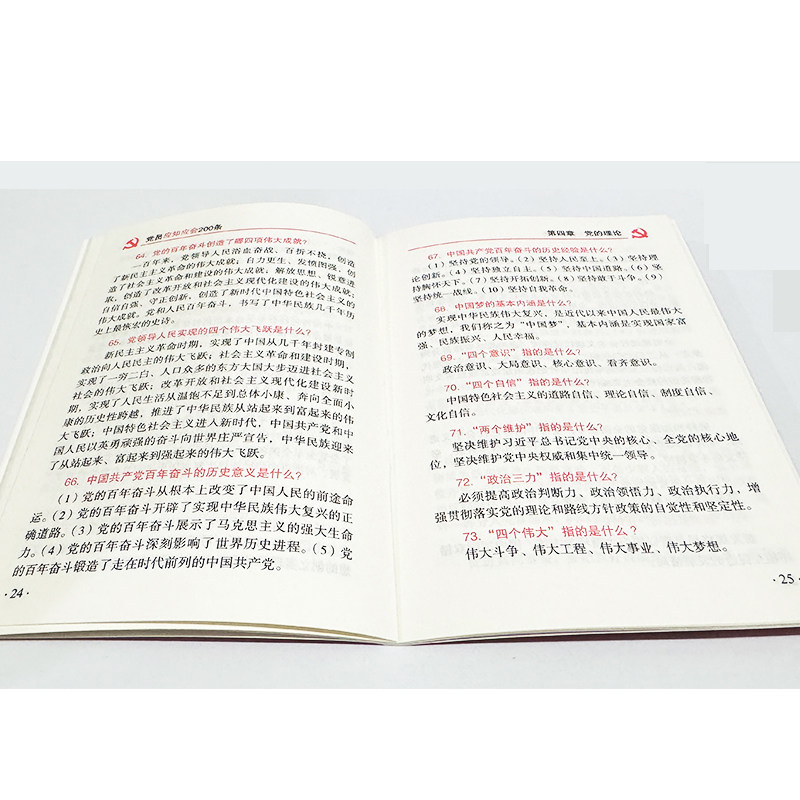 党员应知应会200条
64. 党的百年奋斗创造了哪四项伟大成就?
一百年来，党领导人民浴血奋战、百折不挠，创造
了新民主主义革命的伟大成就；自力更生、发愤图强，创
造了社会主义革命和建设的伟大成就，解放思想、锐意进
取，创造了改革开放和社会主义现代化建设的伟大成就；
自信自强、守正创新，创造了新时代中国特色社会主义的
伟大成就。党和人民百年奋斗，书写了中华民族几千年历
史上最恢宏的史诗。
65. 党领导人民实现的四个伟大飞跃是什么?
新民主主义革命时期，实现了中国从几千年封建专制
政治向人民民主的伟大飞跃；社会主义革命和建设时期，
实现了一穷二白、人口众多的东方大国大步迈进社会主义
社会的伟大飞跃；改革开放和社会主义现代化建设新时
期，实现了人民生活从温饱不足到总体小康、奔向全面小
康的历史性跨越，推进了中华民族从站起来到富起来的伟
大飞跃；中国特色社会主义进入新时代，中国共产党和中
国人民以英勇顽强的奋斗向世界庄严宣告，中华民族迎来
了从站起来、富起来到强起来的伟大飞跃。
66. 中国共产党百年奋斗的历史意义是什么?
（1）党的百年奋斗从根本上改变了中国人民的前途命
运。（2）党的百年奋斗开辟了实现中华民族伟大复兴的正
确道路。（3）党的百年奋斗展示了马克思主义的强大生命
力。（4）党的百年奋斗深刻影响了世界历史进程。（5）党
的百年奋斗锻造了走在时代前列的中国共产党。
· 24 ·
第四章 党的理论
67. 中国共产党百年奋斗的历史经验是什么?
（1）坚持党的领导。（2）坚持人民至上。（3）坚持理
论创新。（4）坚持独立自主。（5）坚持中国道路。（6）坚
持胸怀天下。（7）坚持开拓创新。（8）坚持敢于斗争。（9）
坚持统一战线。（10）坚持自我革命。
68 中国梦的基本内涵是什么?
实现中华民族伟大复兴，是近代以来中国人民最伟大
的梦想，我们称之为“中国梦”，基本内涵是实现国家富
强、民族振兴、人民幸福。
69. “四个意识”指的是什么?
政治意识、大局意识、核心意识、看齐意识。
70. “四个自信”指的是什么?
中国特色社会主义的道路自信、理论自信、制度自信、
文化自信。
71. “两个维护”指的是什么?
坚决维护习近平总书记党中央的核心、全党的核心地
位，坚决维护党中央权威和集中统一领导。
72. “政治三力”指的是什么?
必须提高政治判断力、政治领悟力、政治执行力，增
强贯彻落实党的理论和路线方针政策的自觉性和坚定性。
73. “四个伟大”指的是什么?
伟大斗争、伟大工程、伟大事业、伟大梦想。
· 25 ·